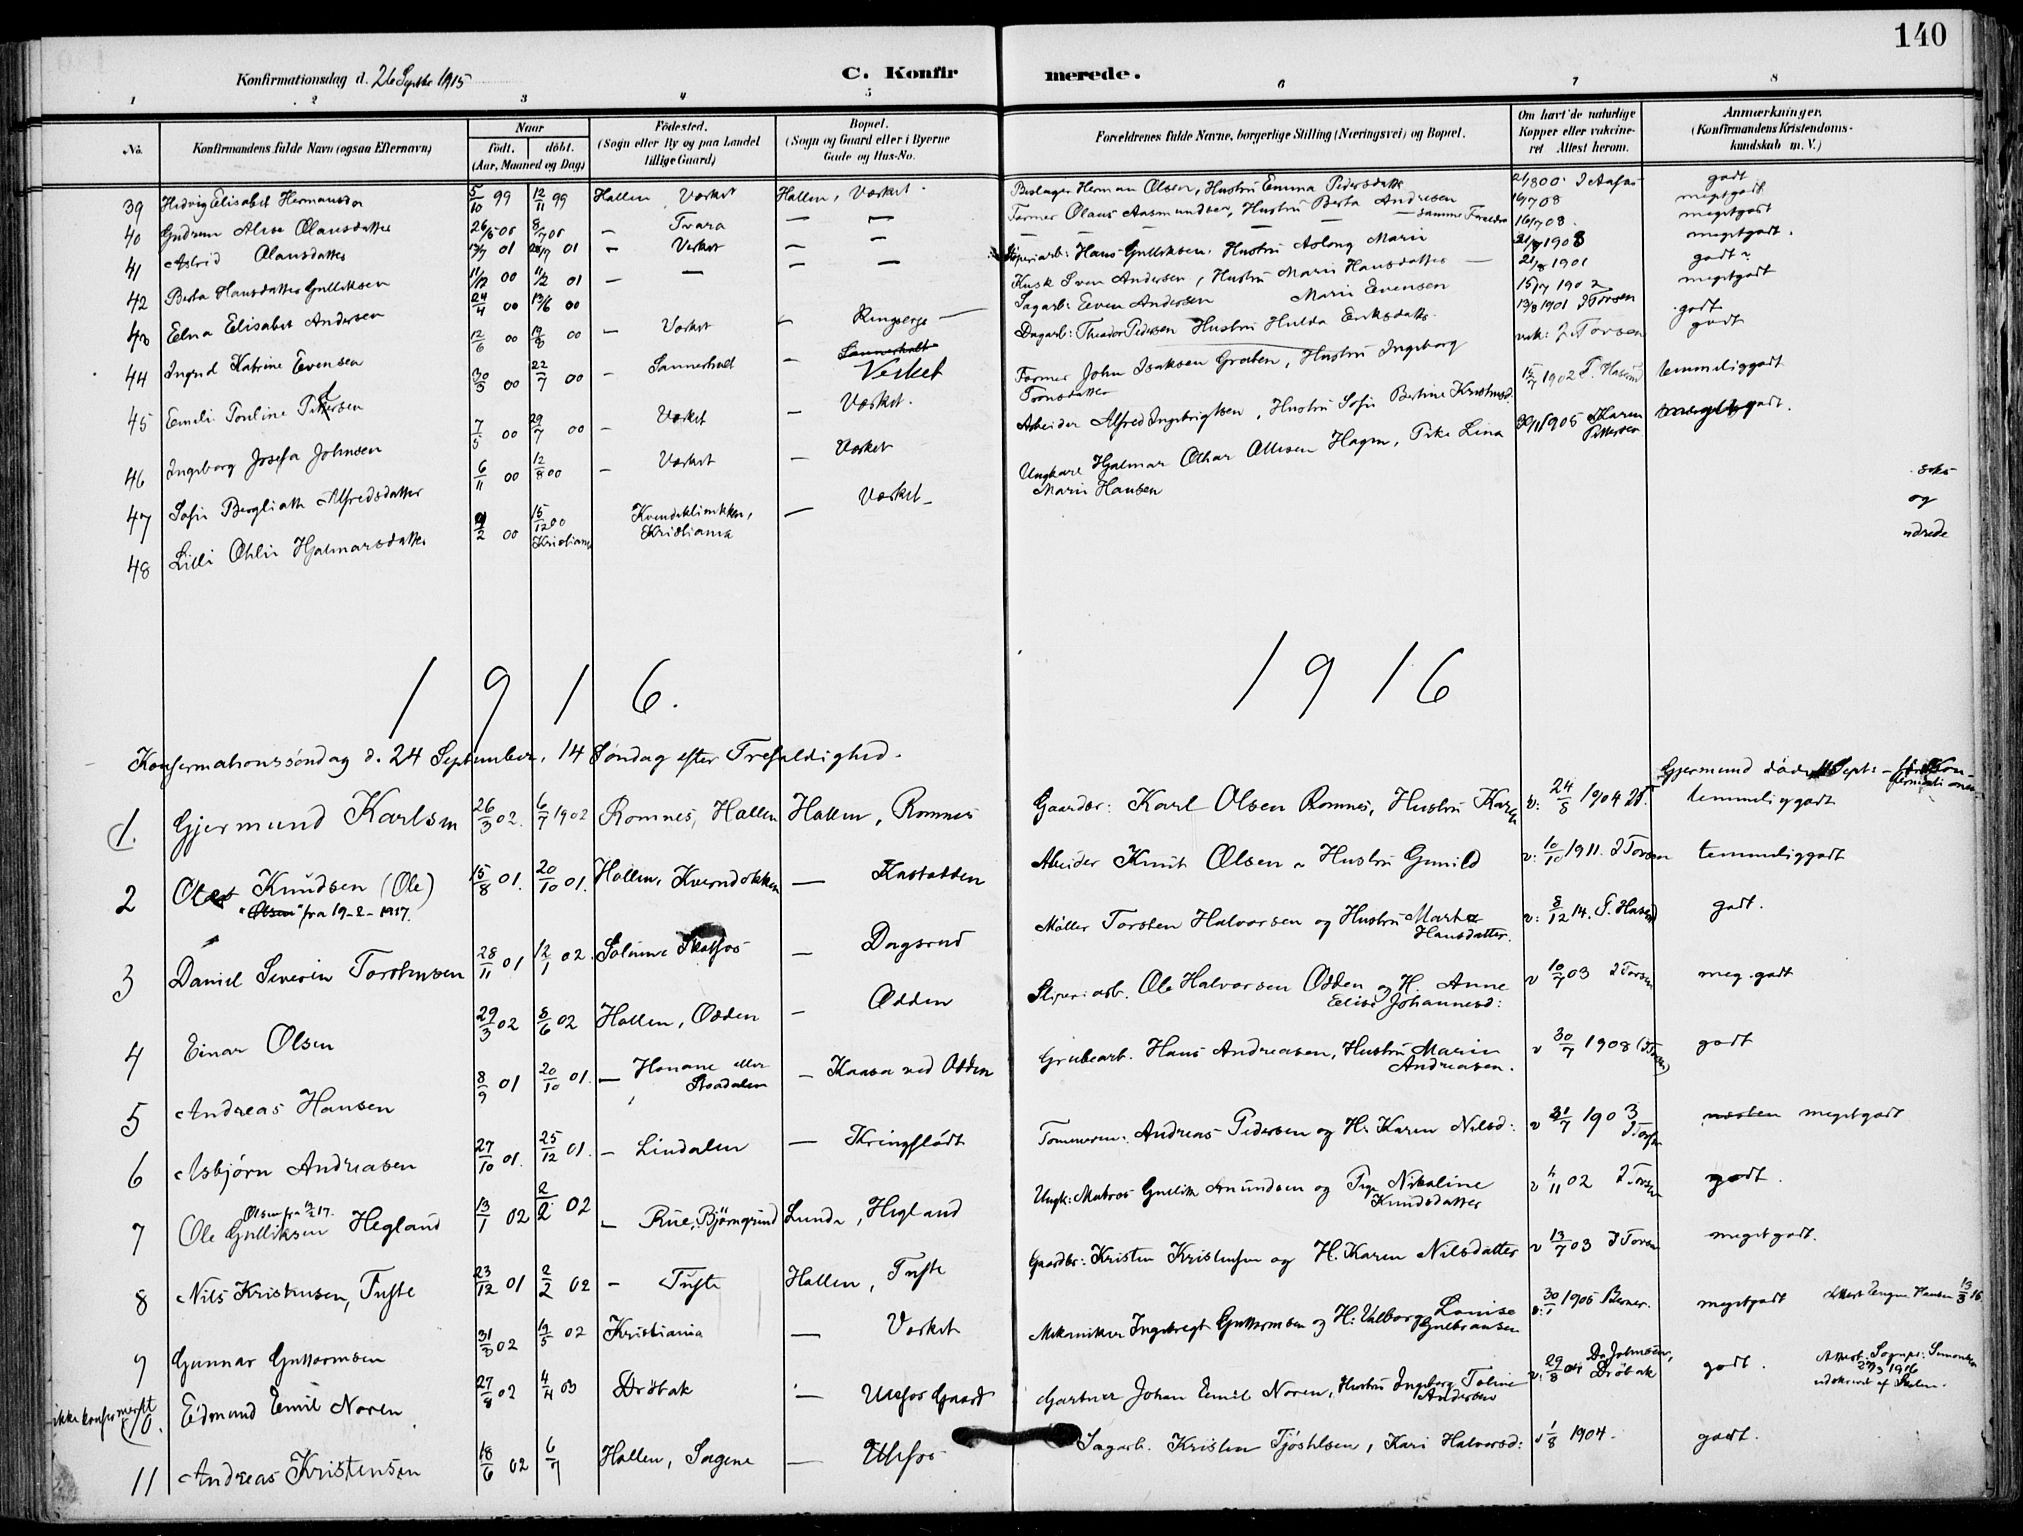 140
Konfirmationsdag d. 26 Septbr 1915
C. Konfir merede.
1 2 3 4 5 6 7 8
No. Konfirmandens fulde Navn (ogsaa Efternavn) Naar födt. döbt. (Aar, Maaned og Dag) Födested. (Sogn eller By og paa Landet tillige Gaard) Bopæl. (Sogn og Gaard eller i Byerne Gade og Hus-No. Forældrenes fulde Navne, borgerlige Stilling (Næringsvei) og Bopæl. Om havt de naturlige Kopper eller vakcineret Attest herom. Anmærkninger. (Konfirmandens Kristendomskundskab m. V.)
39 Hedvig Elisabet Hermansda 5/10 99 12/11 99 Hollen, Værket Hollen, Værket. Herman Olsen, Hustru Emma Pedersdatter godt
40 Gudrun Alise Olausdatter Tvara — — Former Olaus Aasmundsen, Hustru Berta Andresen 16/7 08 megetgodt
41 Astrid Olausdatter 13/7 01 01 — Verket — — — — — — samme Forældre 16/7 08. megetgodt
42 Berta Hansdatter Gulliksen 11/12 00 11/2 01 — — — — Hans Gulliksen, Hustru Aslaug Marie 1908 megetgodt.
43 Elna Elisabet Andersen 24/4 00 17/6 00 Kusk Sven Andersen, Hustru Marie Hansdatter 21/8 1901 godt
44 Ingrid Katrine Evensen 12/6 00 19/8 00 — Værket — Ringsege Sagarb: Even Andersen Marie Evensen 15/7 1902 megetgodt
45 Emili Pouline Pettersen 30/3 00 22/7 00 — Sannerholt — Sannerholt Verket Dagarb: Theodor Pedersen Hustru Hulda Eriksdatter. 13/8 1901 I Torsen godt
46 Ingeborg Josefa Johnsen 7/5 00 29/7 00 — Værket — Værket. Former John Isaksen Graten, Hustru Ingeborg Tronsdatter vak: I Torsen godt
47 Sofie Bergliatte Alfredsdatter 6/11 00 12/8 00 — Værket — Værket Arbeider Alfred Ingebrigtsen, Hustru Sofie Bertine Kristensd. 1902 T. Hasund temmeliggodt
48 Lilli Othlie Hjalmarsdatter 9/2 00 15/12 00 Kristiania Kvindeklinikken, Kristiania — Værket — Ungkarl Hjalmar Othar Ottesen Hagen, Pike Lina Marie Hansen 30/11 1905 Karen Pettersen megetgodt.
seks
og
ndrede
1 9 1 6. 1 9 1 6
Konfermationssöndag d. 24 September, 14 Söndag efter Trefoldighed.
1. Gjermund Karlsen 26/3 02. 6/7 1902 Romnes, Hollen Hollen, Romnes Gaardbr: Karl Olsen Romnes, Hustru Karen v: 24/8 1904 Gjermund döde Septs — för Konfermationen temmeliggodt
2 Knudsen (Ole) "Olsen" fra 19-2-1917. 15/8 01. 20/10 01. Hollen, Kverndokken — Kastodden Arbeider Knut Olsen a Hustru Gunild v: 10/10 1911. I Torsen temmeliggodt
3 Daniel Severin Torstensen 28/11 01 12/1 02. Solum Skotfos — Dagsrud Møller Torsten Halvorsen og Hustru Marta Hansdatter. v: 8/12 14. T. Hasund godt.
4 Einar Olsen 29/3 02 8/6 02 Hollen, Odden — Odden Sliperiarb. Ole Halvorsen Odden og H. Anne Elise Johannesd: v 10/7 03 I Torsen meg. godt
5 Andreas Hansen 8/9 01 20/10 01. — Honane eller Roadalen — Kaasa ved Odden Grubearb. Hans Andreasen, Hustru Marie Andreasen. v 30/7 1908 (Torsen) godt
6 Asbjørn Andreasen 27/10 01. 25/12 01. — Lindalen — Kringflödt Tommerm. Andreas Pedersen og H. Karen Nilsd: v 31/7 1903 I Torsen næsten megetgodt
7 Olsen fra 17. Ole Gulliksen Hegland 13/1 02 2/2 02 — Rue, Björngrund Lunde, Hegland Ungk: Matros Gullik Amundsen og Pige Nikoline Knudsdatter v 4/11 02 I Torsen godt.
8 Nils Kristensen, Tufte 23/12 01 2/2 02 — Tufte Hollen, Tufte Gaardbr: Kristen Kristensen og H. Karen Nilsdatter v 13/7 03 I Torsen megetgodt.
9 Gunnar Guttormsen 31/3 02 19/5 02 Kristiania — Værket Mekaniker Ingebregt Guttormsen og H: Valborg Lovise Gulbransen v: 30/1 1905 Berner. megetgodt Hansen 13/3 16
ikke konfermert 10. Edmund Emil Noren 27/8 02 4/4 03 Dröbak — Ulefos Gaard Gartner Johan Emil Noren, Hustru Ingeborg Toline Andersen v: 29/8 04 Dr Johnsen, Dröbak godt. Attest: Sognepr: Simonsen 27/3 1916 udskrevet af Skolen.
11 Andreas Kristensen 18/6 02 6/7 Hollen, Sagene — Ulefos Sagarb. Kristen Tjöstelsen, Kari Halvorsd: v 1/8 1904. godt.